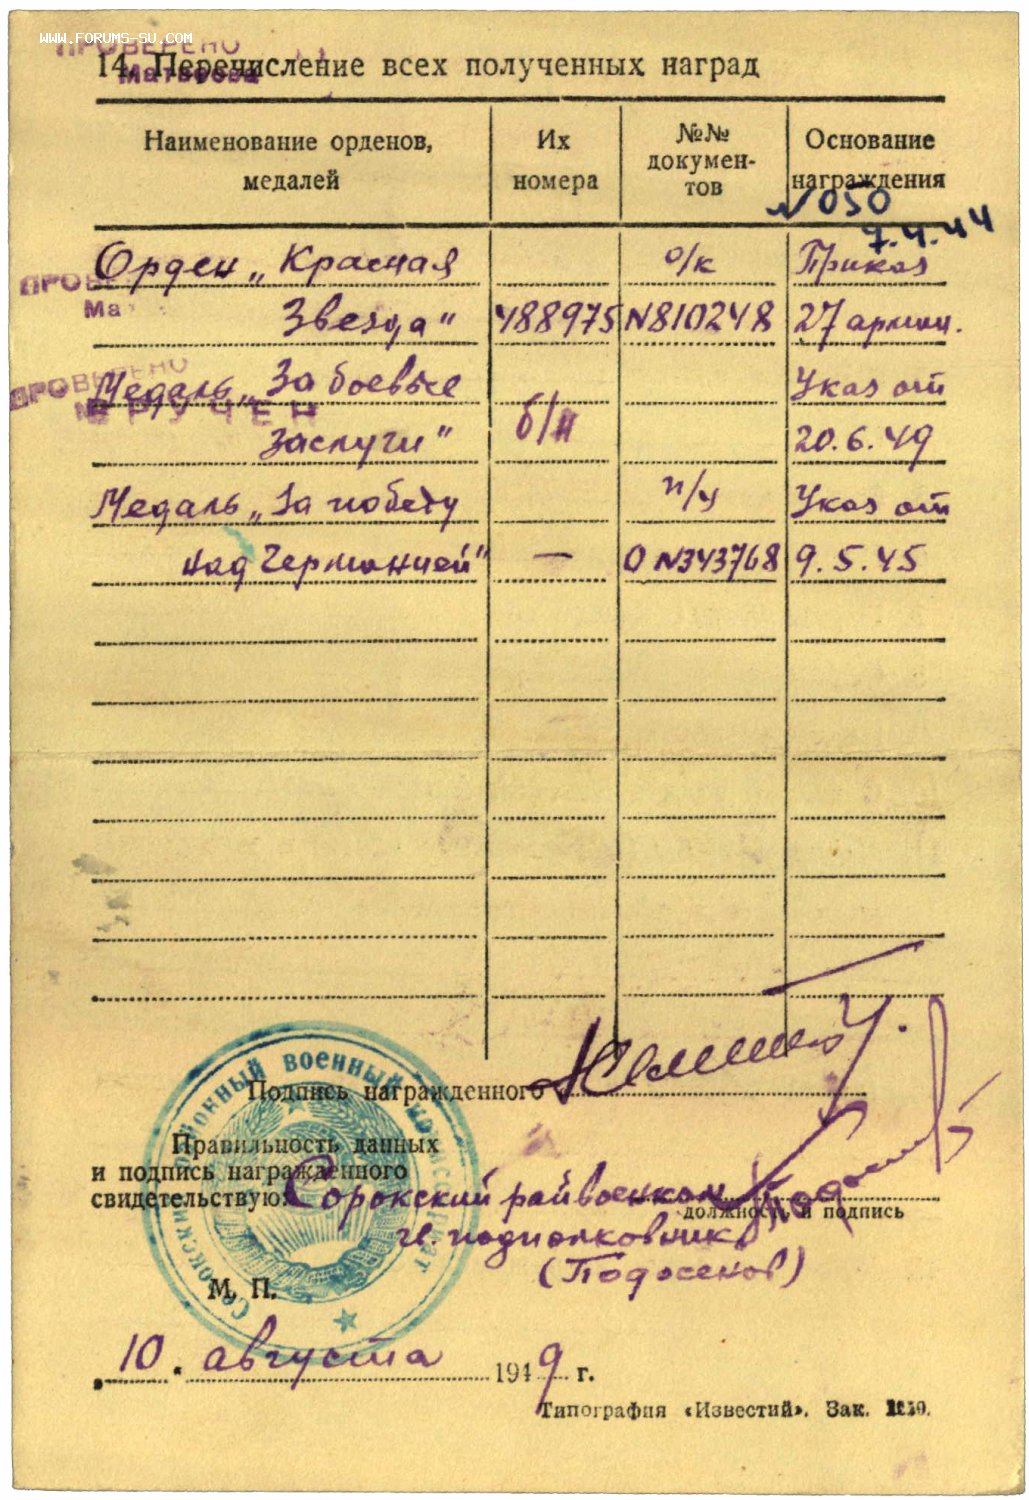 WWW.FORUMS-SU.COM
ПРОВЕРЕНО
Матвеева
14. Перечисление всех полученных наград
Наименование орденов, медалей
Их номера
№№ документов
Основание награждения
N 050
7.4.44
Орден „Красная о/к Приказ
Звезда" 488975 N810248 27 армии.
ПРОВЕ
Ма
ПРОВЕРЕНО
Медаль „За боевые Указ от
ВРУЧЕН
заслуги" б/н 20.6.49
Медаль „За победу п/у Указ от
над Германией" — О N343768 9.5.45
Подпись награжденного
Правильность данных
и подпись награжденного
свидетельствую: Сорокский райвоенком
должность и подпись
гв. подполковник
(Подосенов)
М. П.
Сорокский районный военный комиссариат
„10." августа 1949 г.
Типография «Известий». Зак.